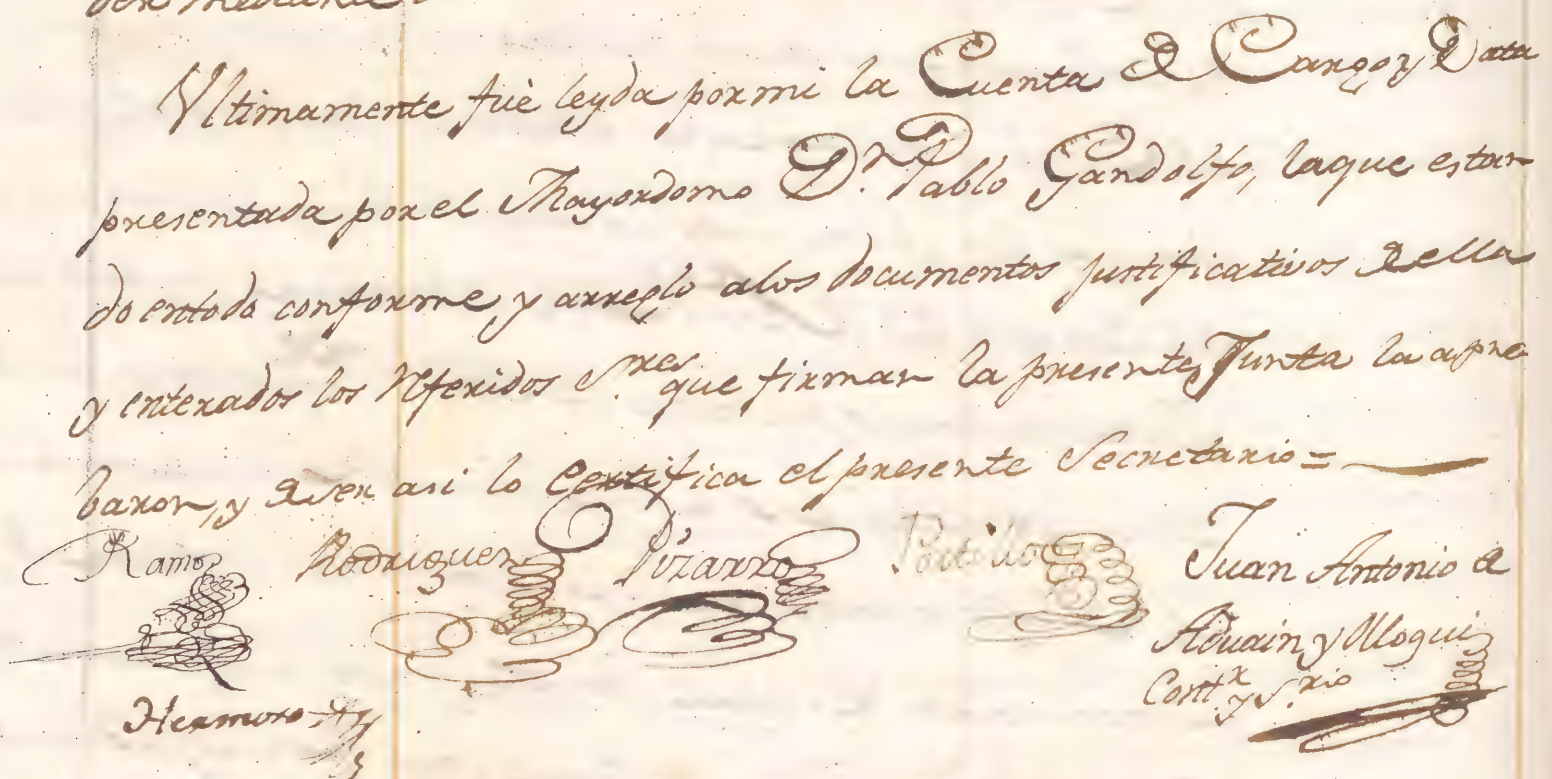 Ultimamente fuè leyda por mi la Cuenta de Cargo y Data
presentada por el Mayordomo Dn. Pablo Gandolfo, la que estan
do entodo conforme y arreglo a los documentos justificativos de ella
y enterados los referidos Sres. que firman la presente Junta la apro
baron, y de ser asi lo certifica el presente Secretario =
Ramos Rodriguez Pizarro Portillo Juan Antonio de
Aduain y Moqui
Contr. y Srio
Hermoso